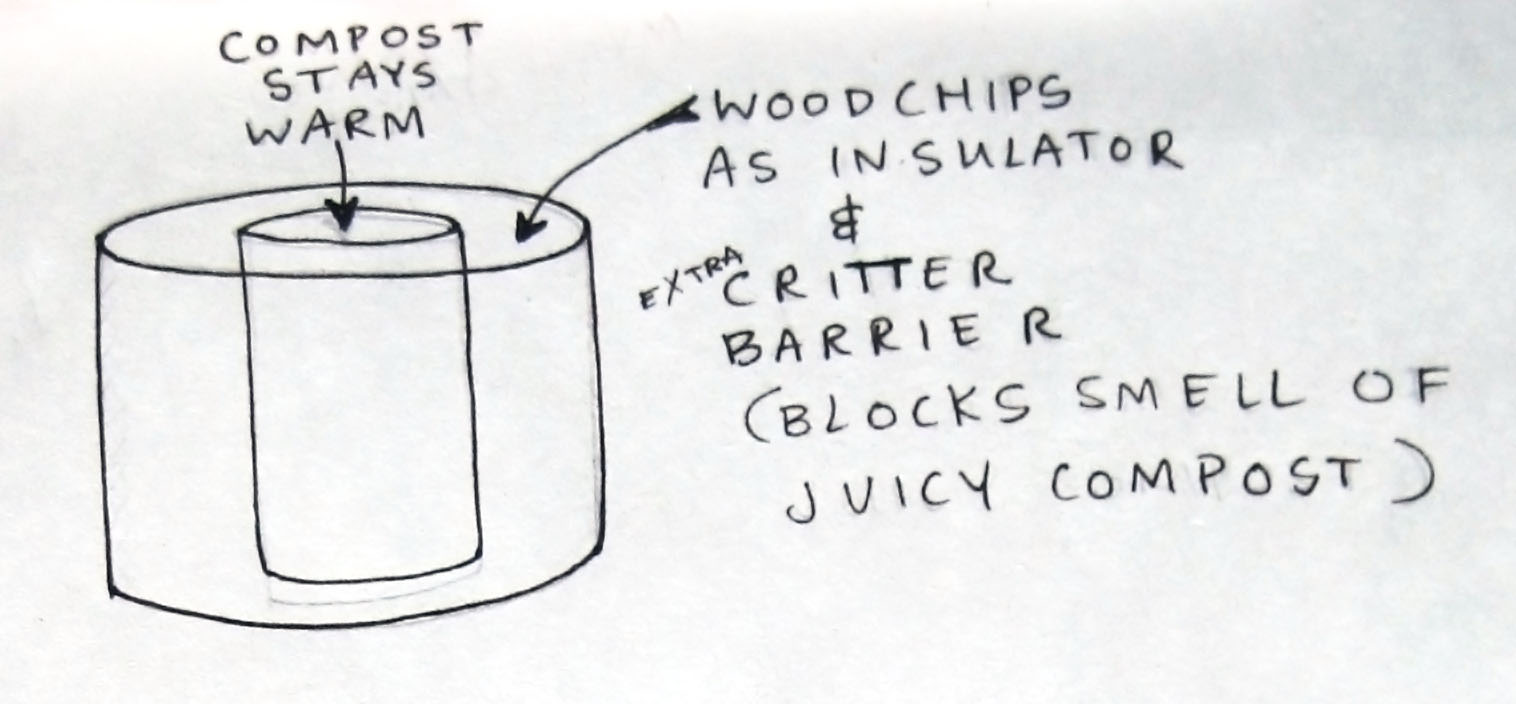 COMPOST
STAYS
WARM
WOODCHIPS
AS INSULATOR
&
EXTRA CRITTER
BARRIER
(BLOCKS SMELL OF
JUICY COMPOST)